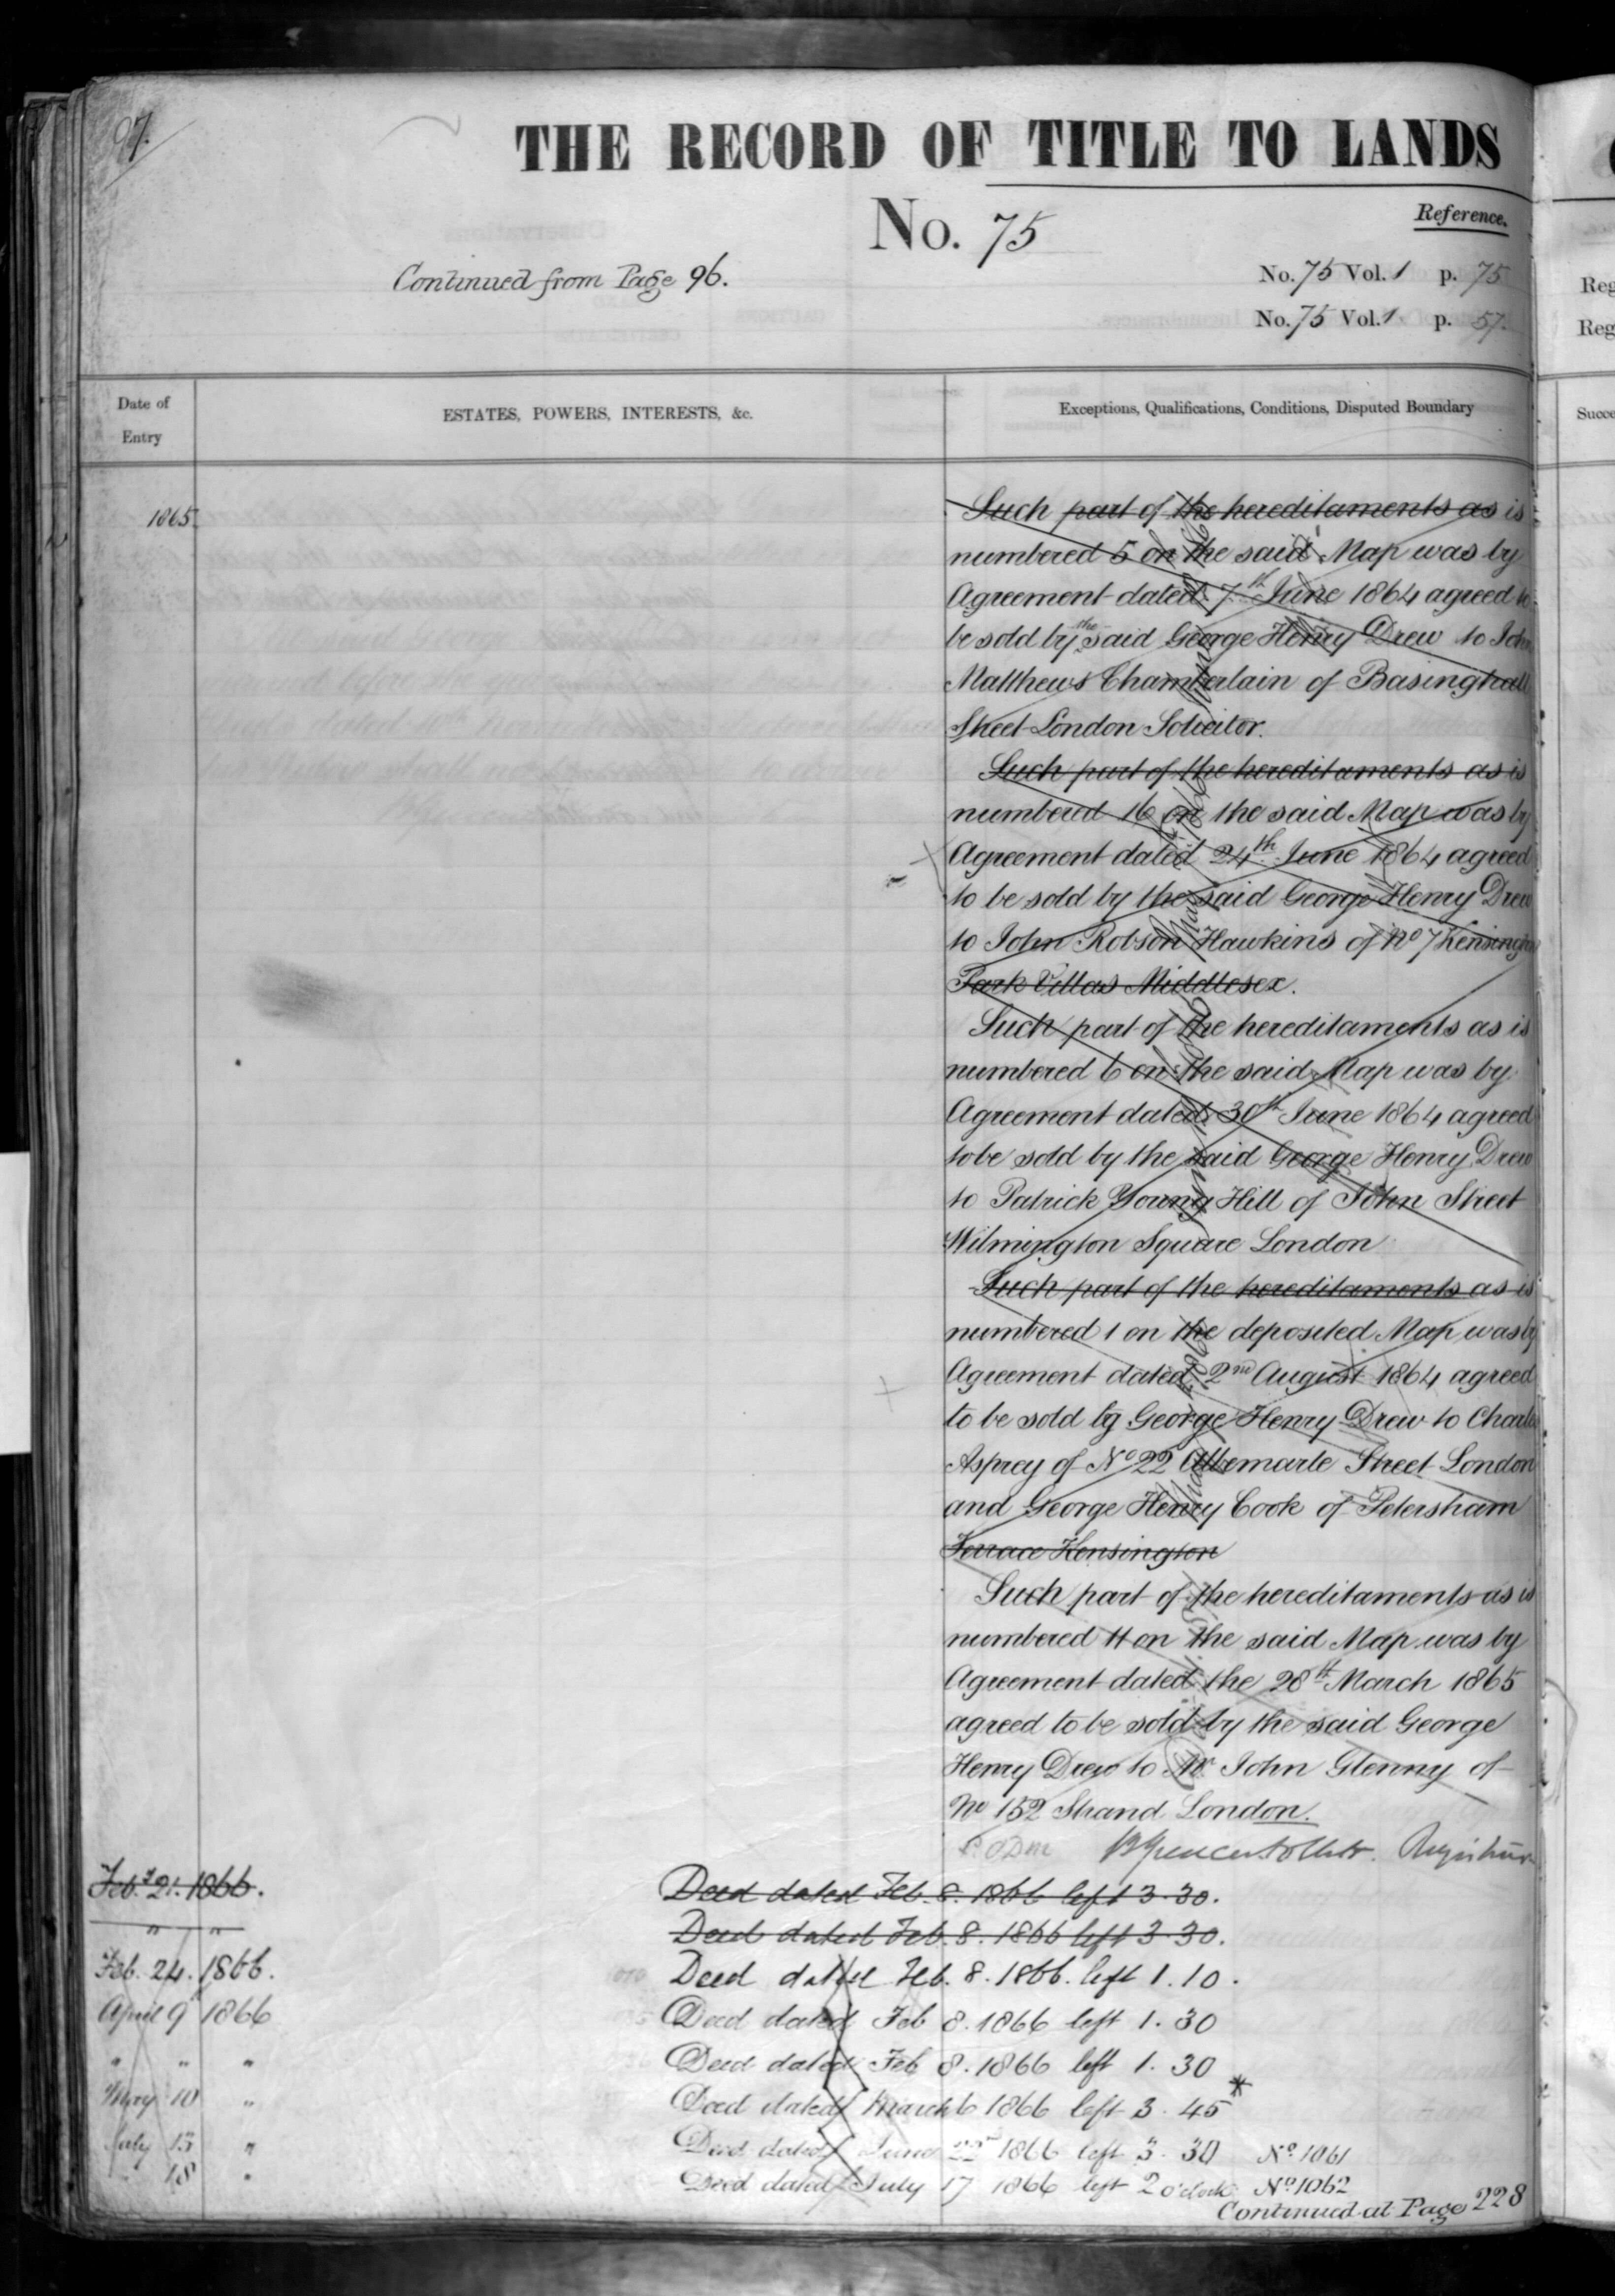 97.
THE RECORD OF TITLE TO LANDS
No. 75
Reference.
Continued from Page 96.
No. 75 Vol. 1 p. 75
No. 75 Vol. 1 p. 57.
Reg
Reg
Date of Entry
ESTATES, POWERS, INTERESTS, &c.
Exceptions, Qualifications, Conditions, Disputed Boundary
Succe
1865.
Such part of the hereditaments as is
numbered 5 on the said Map was by
Agreement dated 7th June 1864 agreed to
be sold by the said George Henry Drew to John
Matthews Chamberlain of Basinghall
Street London Solicitor.
Such part of the hereditaments as is
numbered 16 on the said Map was by
Agreement dated 24th June 1864 agreed
to be sold by the said George Henry Drew
to John Robson Hawkins of No 7 Kensington
Park Villas Middlesex.
Such part of the hereditaments as is
numbered 6 on the said Map was by
Agreement dated 30th June 1864 agreed
to be sold by the said George Henry Drew
to Patrick Young Hill of John Street
Wilmington Square London
Such part of the hereditaments as is
numbered 1 on the deposited Map was by
Agreement dated 2nd August 1864 agreed
to be sold by George Henry Drew to Charles
Asprey of No 22 Albemarle Street London
and George Henry Cook of Petersham
Terrace Kensington
Such part of the hereditaments as is
numbered 11 on the said Map was by
Agreement dated the 28th March 1865
agreed to be sold by the said George
Henry Drew to Mr John Glenny of
No 152 Strand London.
Feby 21. 1866. Deed dated Feb. 8. 1866 left 3.30.
" " Deed dated Feb. 8. 1866 left 3.30.
Feb. 24. 1866. Deed dated Feb. 8. 1866. left 1.10.
April 9 1866 Deed dated Feb 8. 1866 left 1.30
" " " Deed dated Feb 8. 1866 left 1.30
May 10 " Deed dated March 6 1866 left 3.45 *
July 13 " Deed dated June 22nd 1866 left 3.30 No. 1061
" 18 " Deed dated July 17 1866 left 2 o'clock No. 1062
Continued at Page 228